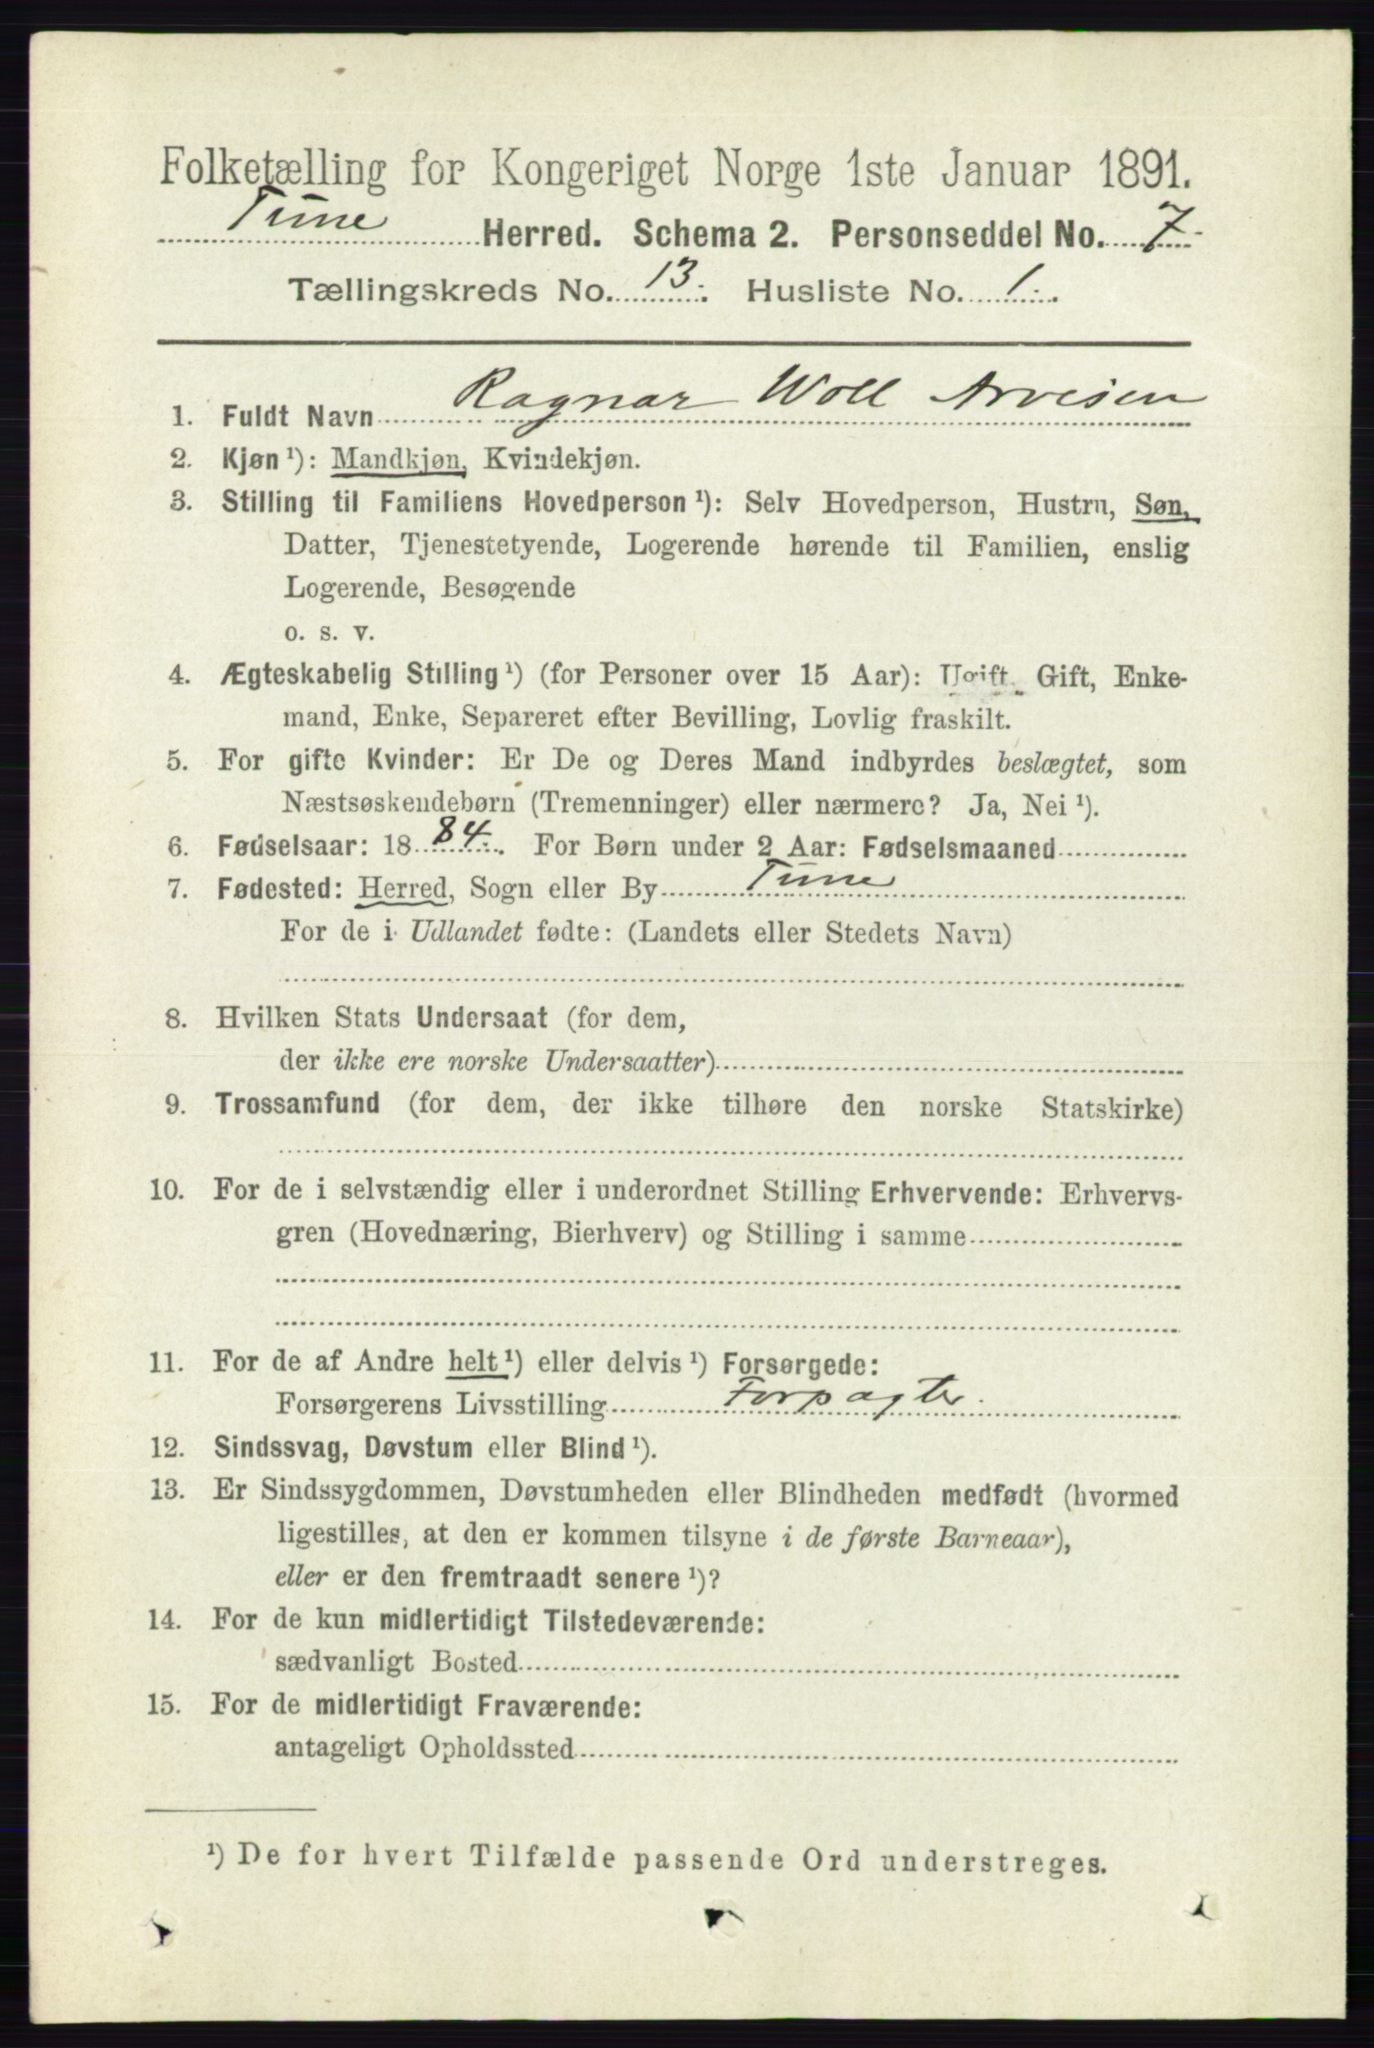 Folketælling for Kongeriget Norge 1ste Januar 1891.
Tune Herred. Schema 2. Personseddel No. 7
Tællingskreds No. 13. Husliste No. 1.
1. Fuldt Navn Ragnar Woll Arvesen
2. Kjøn ¹): Mandkjøn, Kvindekjøn.
3. Stilling til Familiens Hovedperson ¹): Selv Hovedperson, Hustru, Søn,
Datter, Tjenestetyende, Logerende hørende til Familien, enslig
Logerende, Besøgende
o. s. v.
4. Ægteskabelig Stilling ¹) (for Personer over 15 Aar): Ugift, Gift, Enke-
mand, Enke, Separeret efter Bevilling, Lovlig fraskilt.
5. For gifte Kvinder: Er De og Deres Mand indbyrdes beslægtet, som
Næstsøskendebørn (Tremenninger) eller nærmere? Ja, Nei ¹).
6. Fødselsaar: 1884. For Børn under 2 Aar: Fødselsmaaned
7. Fødested: Herred, Sogn eller By Tune
For de i Udlandet fødte: (Landets eller Stedets Navn)
8. Hvilken Stats Undersaat (for dem,
der ikke ere norske Undersaatter)
9. Trossamfund (for dem, der ikke tilhøre den norske Statskirke)
10. For de i selvstændig eller i underordnet Stilling Erhvervende: Erhvervs-
gren (Hovednæring, Bierhverv) og Stilling i samme
11. For de af Andre helt ¹) eller delvis ¹) Forsørgede:
Forsørgerens Livsstilling Forpagter.
12. Sindssvag, Døvstum eller Blind ¹).
13. Er Sindssygdommen, Døvstumheden eller Blindheden medfødt (hvormed
ligestilles, at den er kommen tilsyne i de første Barneaar),
eller er den fremtraadt senere ¹)?
14. For de kun midlertidigt Tilstedeværende:
sædvanligt Bosted
15. For de midlertidigt Fraværende:
antageligt Opholdssted
¹) De for hvert Tilfælde passende Ord understreges.